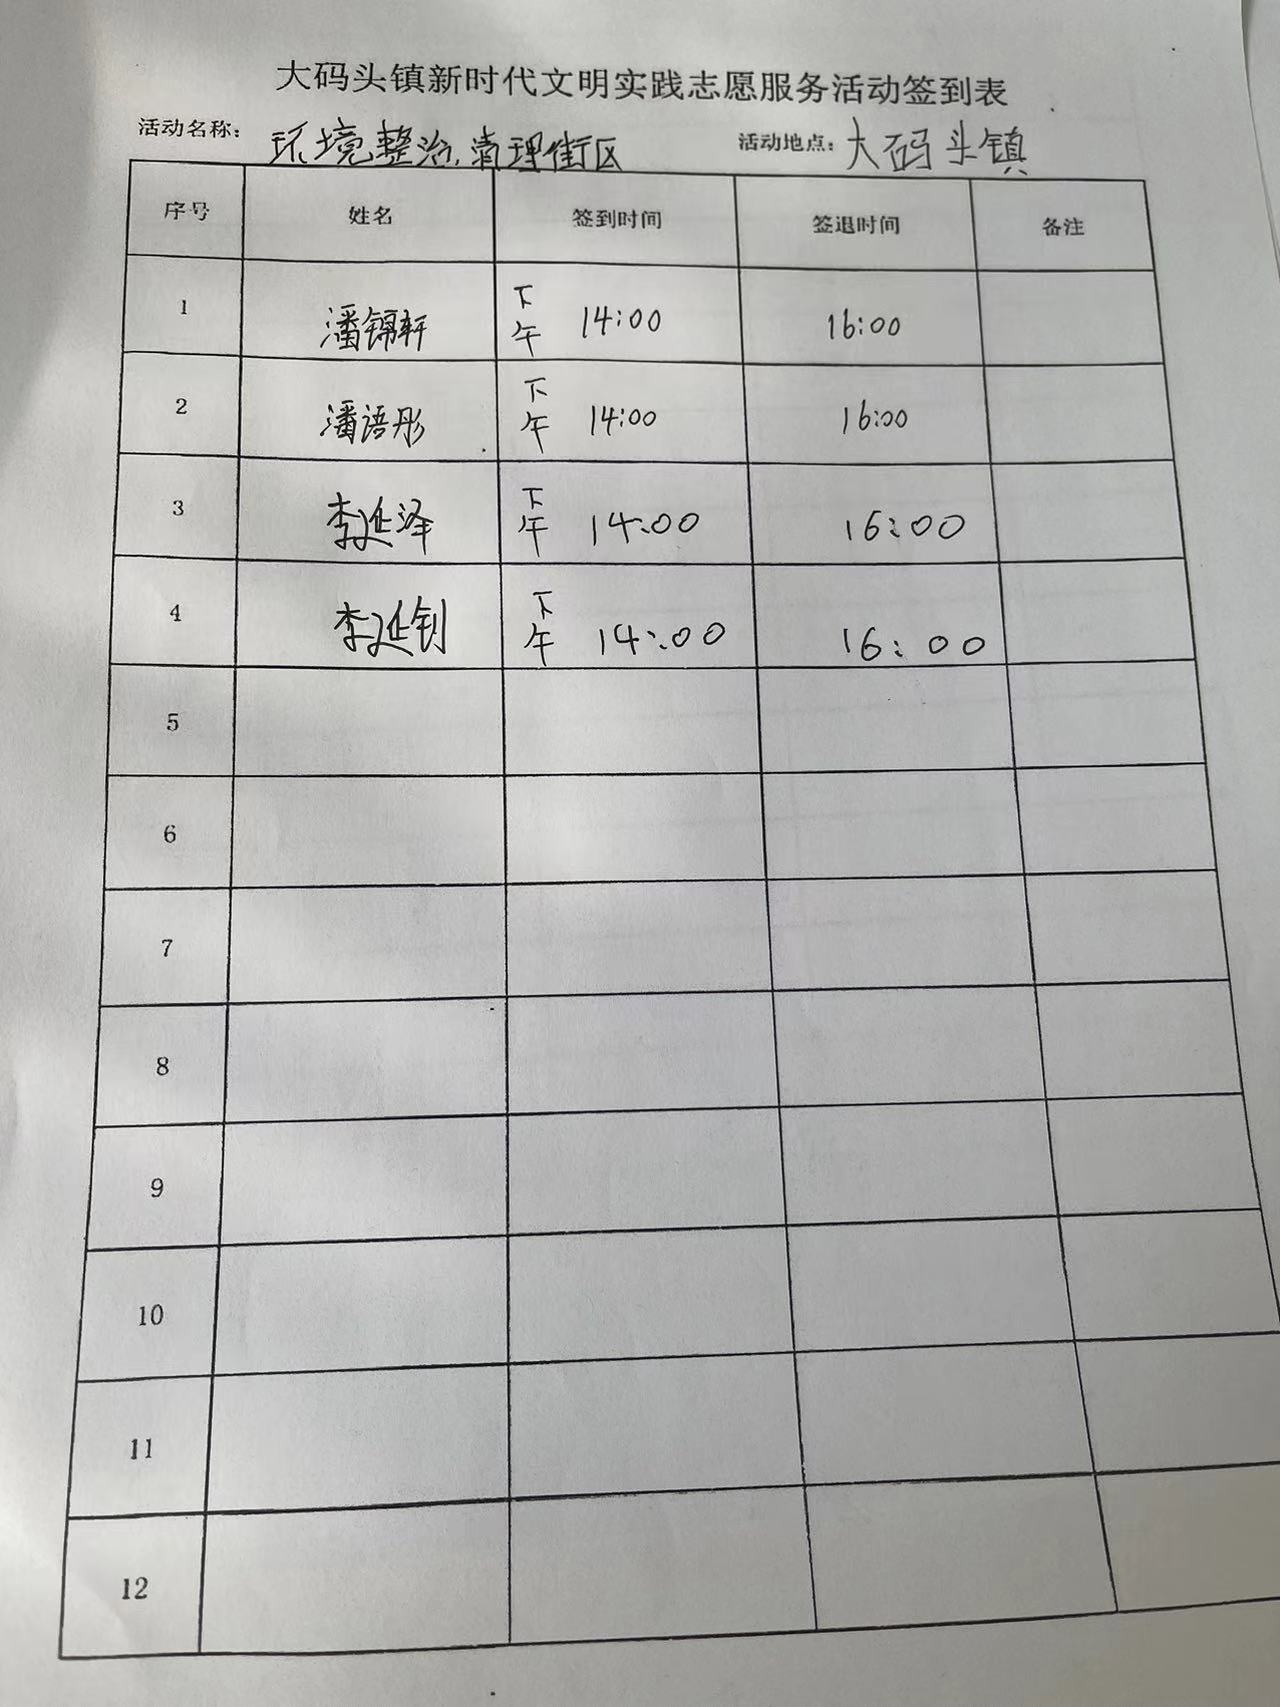 大码头镇新时代文明实践志愿服务活动签到表
活动名称: 环境整治,清理街区 活动地点: 大码头镇
序号 姓名 签到时间 签退时间 备注
1 潘锦轩 下午 14:00 16:00
2 潘语彤 下午 14:00 16:00
3 李延泽 下午 14:00 16:00
4 李延钊 下午 14:00 16:00
5
6
7
8
9
10
11
12